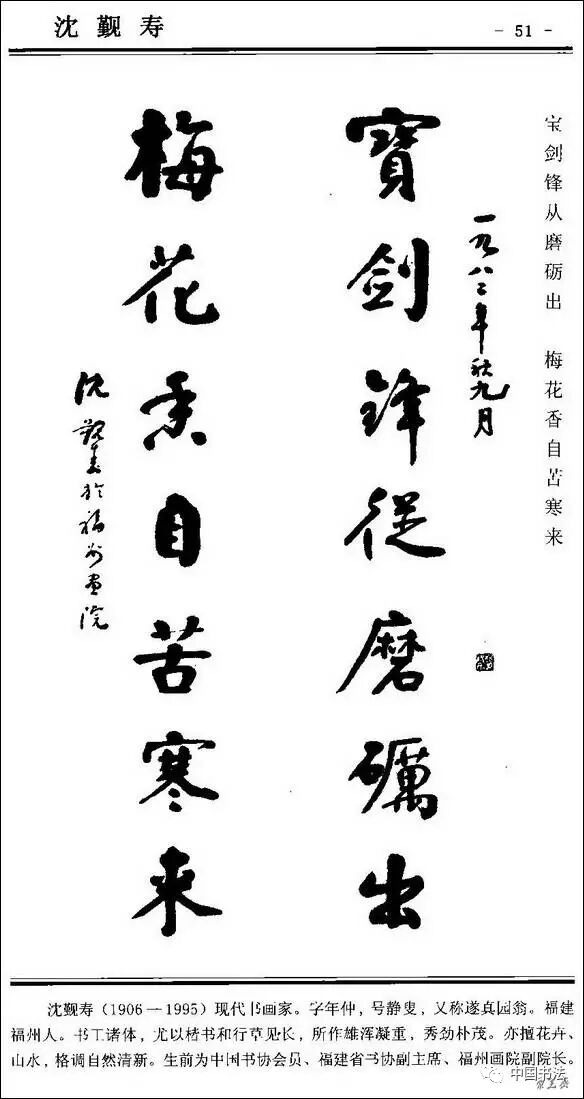 沈觐寿
- 51 -
宝剑锋从磨砺出 梅花香自苦寒来
一九八二年秋九月
寶劍鋒從磨礪出
梅花香自苦寒来
沈觐寿於福州畫院
沈觐寿（1906—1995）现代书画家。字年仲，号静叟，又称遂真园翁。福建
福州人。书工诸体，尤以楷书和行草见长，所作雄浑凝重，秀劲朴茂。亦擅花卉、
山水，格调自然清新。生前为中国书协会员、福建省书协副主席、福州画院副院长。
中国书法